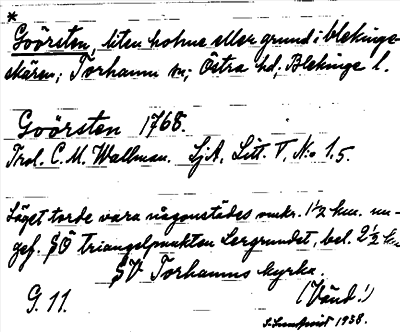 *
Goörsten, liten holme eller grund i blekinge-
skären; Torhamn sn; Östra hd; Blekinge l.
Goörsten 1768.
Trol. C. M. Wallman. SjA, Litt. T, No 1.5.
Läget torde vara någonstädes omkr. 1½ km. un-
gef. SÖ triangelpunkten Lergrundet, bel. 2½ km
SV Torhamns kyrka.
G. 11. (Vänd!)
S. Lundquist 1938.